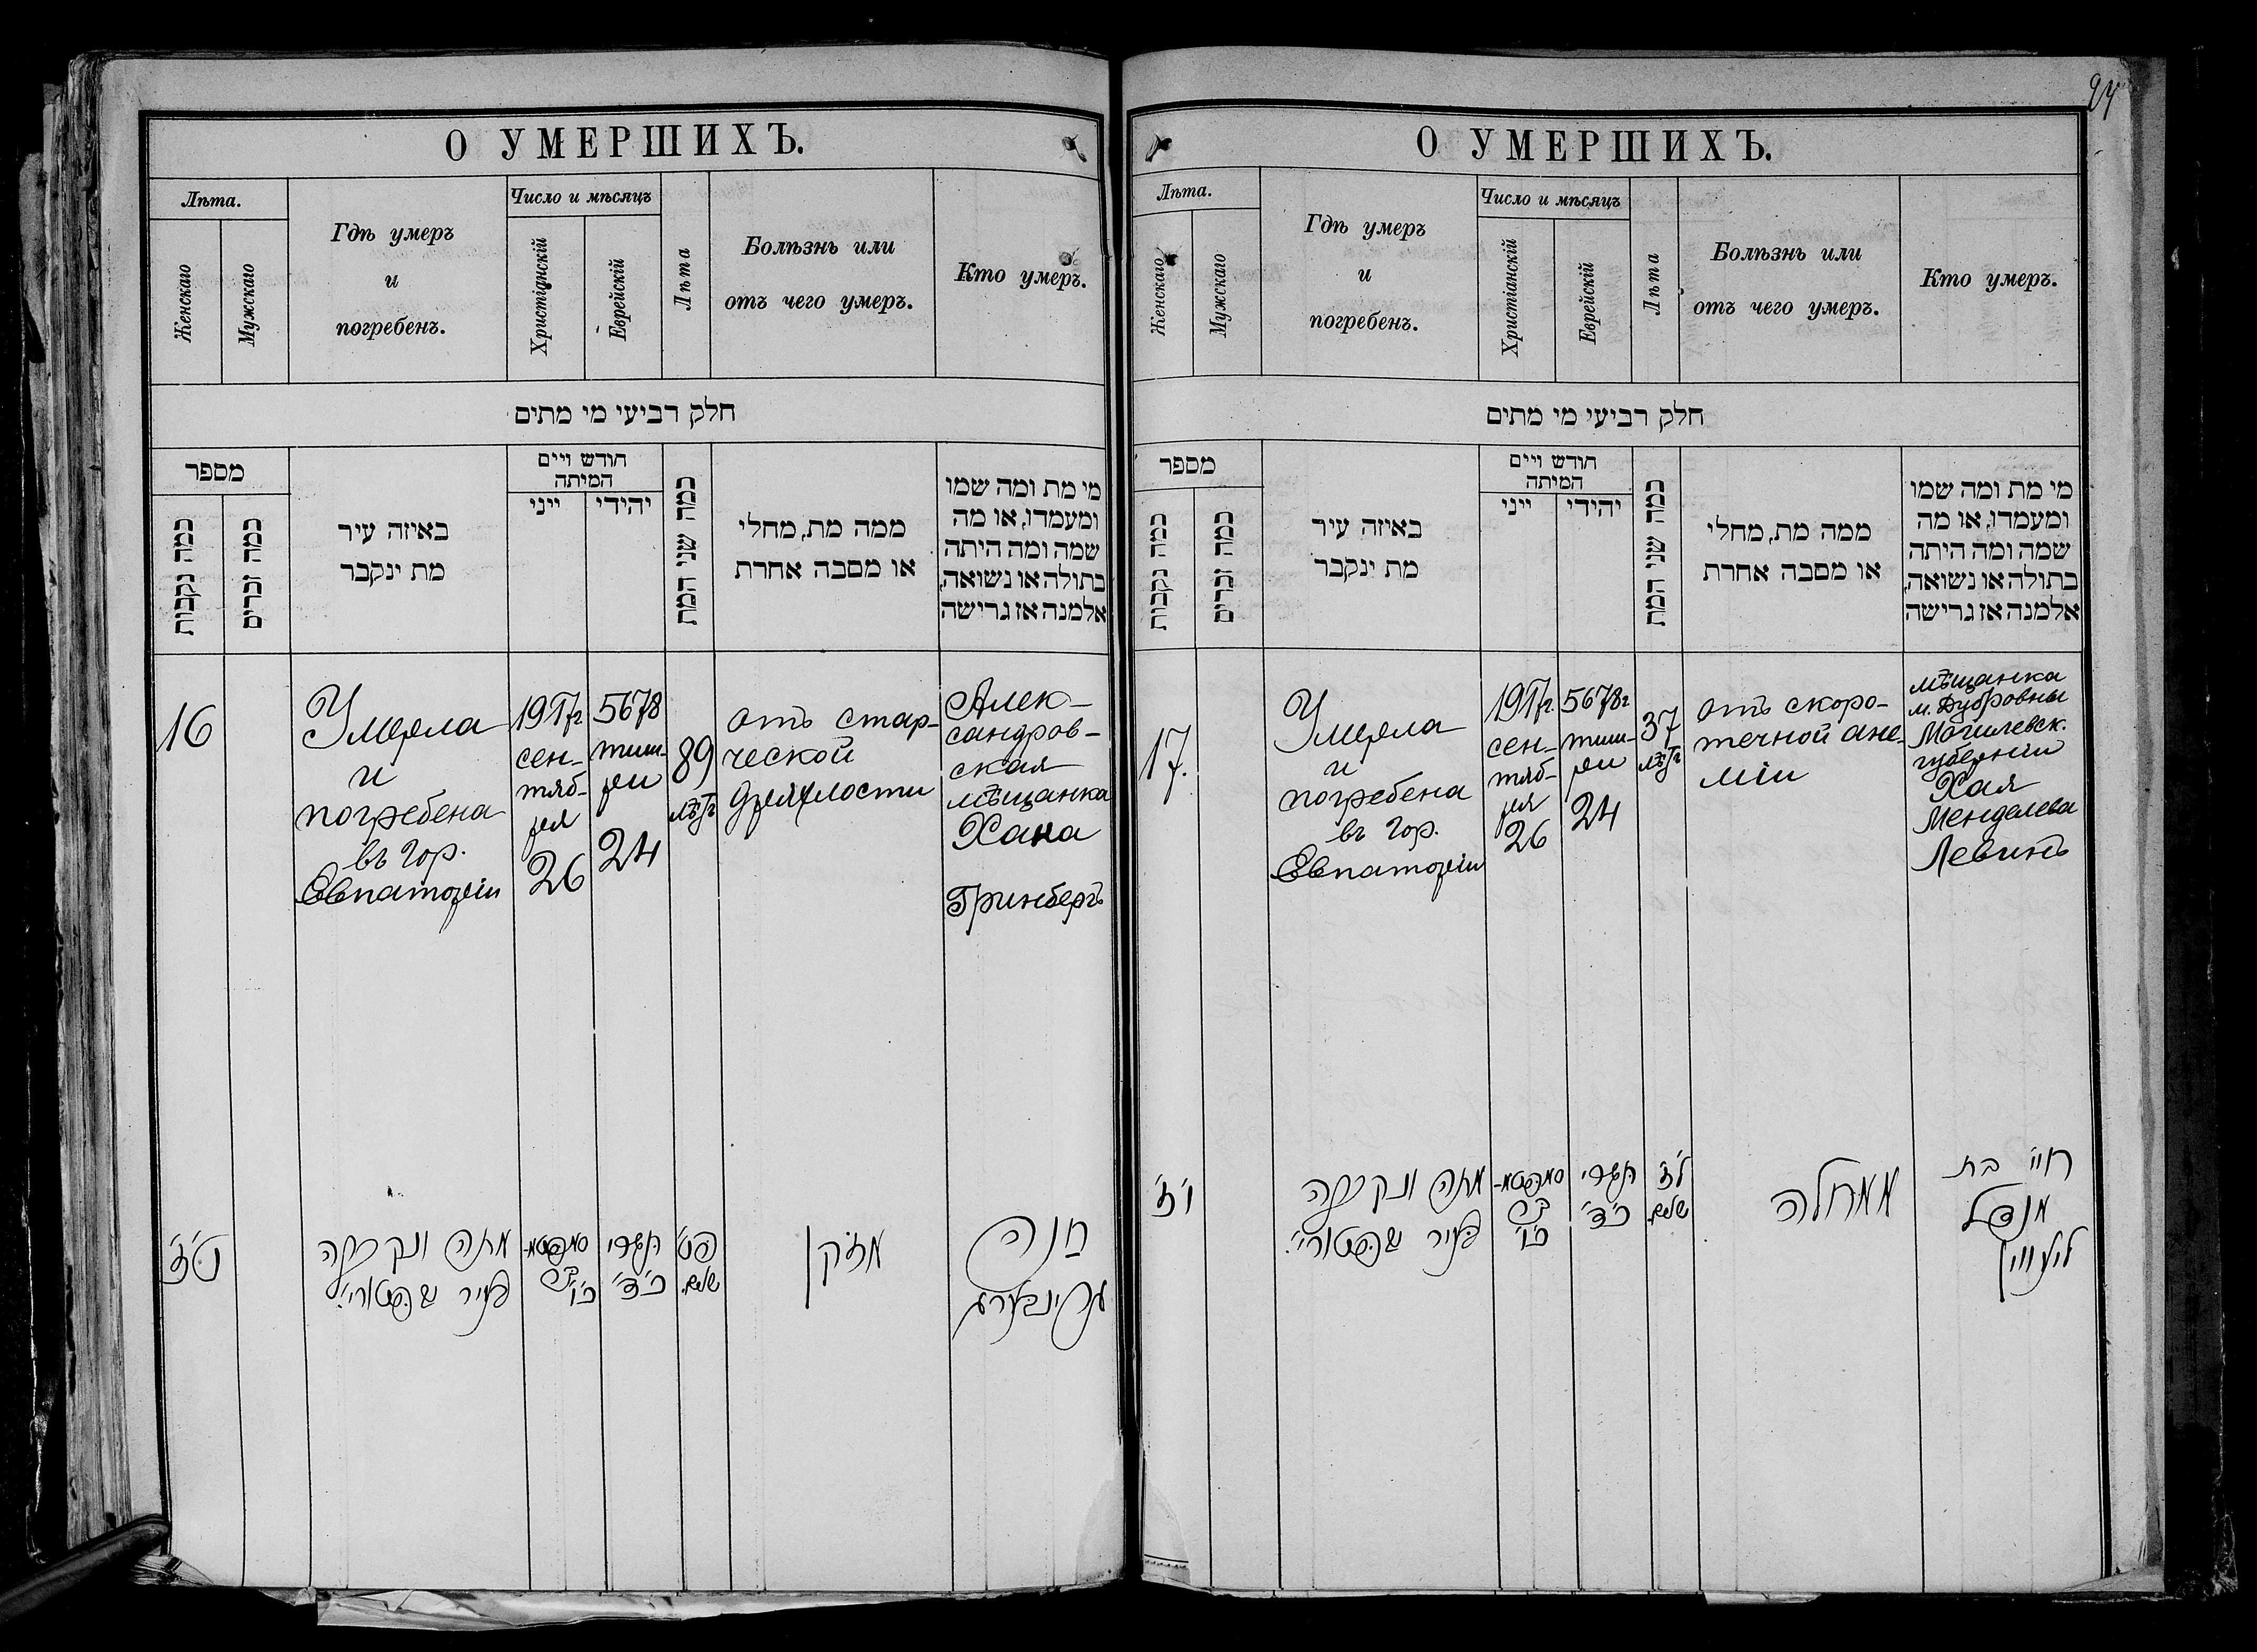 О УМЕРШИХЪ.
Лѣта.
Женскаго
Мужскаго
Гдѣ умеръ
и
погребенъ.
Число и мѣсяцъ
Христіанскій
Еврейскій
Лѣта
Болѣзнь или
отъ чего умеръ.
Кто умеръ.
חלק רביעי מי מתים
מספר
כמה נקבות
כמה זכרים
באיזה עיר
מת ינקבר
חודש ויים
המיתה
ייני
יהידי
כמה שני המת
ממה מת, מחלי
או מסבה אחרת
מי מת ומה שמו
ומעמדו, או מה
שמה ומה היתה
בתולה או נשואה,
אלמנה אז גרישה
16
Умерла
и
погребена
въ гор.
Евпаторіи
1917г
сен-
тяб-
ря
26
5678
тиш-
ри
24
89
лѣтъ
отъ стар-
ческой
дряхлости
Алек-
сандров-
ская
мѣщанка
Хана
Гринбергъ
ט״ז
מתה ונקברה
בעיר
תשרי
כ״ד
כ״ו
מזקן
חנה
גרינבערג
24
О УМЕРШИХЪ.
Лѣта.
Женскаго
Мужскаго
Гдѣ умеръ
и
погребенъ.
Число и мѣсяцъ
Христіанскій
Еврейскій
Лѣта
Болѣзнь или
отъ чего умеръ.
Кто умеръ.
חלק רביעי מי מתים
מספר
כמה נקבות
כמה זכרים
באיזה עיר
מת ינקבר
חודש ויים
המיתה
ייני
יהידי
כמה שני המת
ממה מת, מחלי
או מסבה אחרת
מי מת ומה שמו
ומעמדו, או מה
שמה ומה היתה
בתולה או נשואה,
אלמנה אז גרישה
17.
Умерла
и
погребена
въ гор.
Евпаторіи
1917г.
сен-
тяб-
ря
26
5678г
тиш-
ри
24
37
лѣтъ
отъ скоро-
течной ане-
міи
мѣщанка
м. Дубровны
Могилевск.
губерніи
Хая
Менделева
Левинъ
י״ז
מתה ונקברה
בעיר
כ״ו
תשרי
כ״ד
ל״ז
ממחלה
חיי׳ בת
מנדל
לעווין